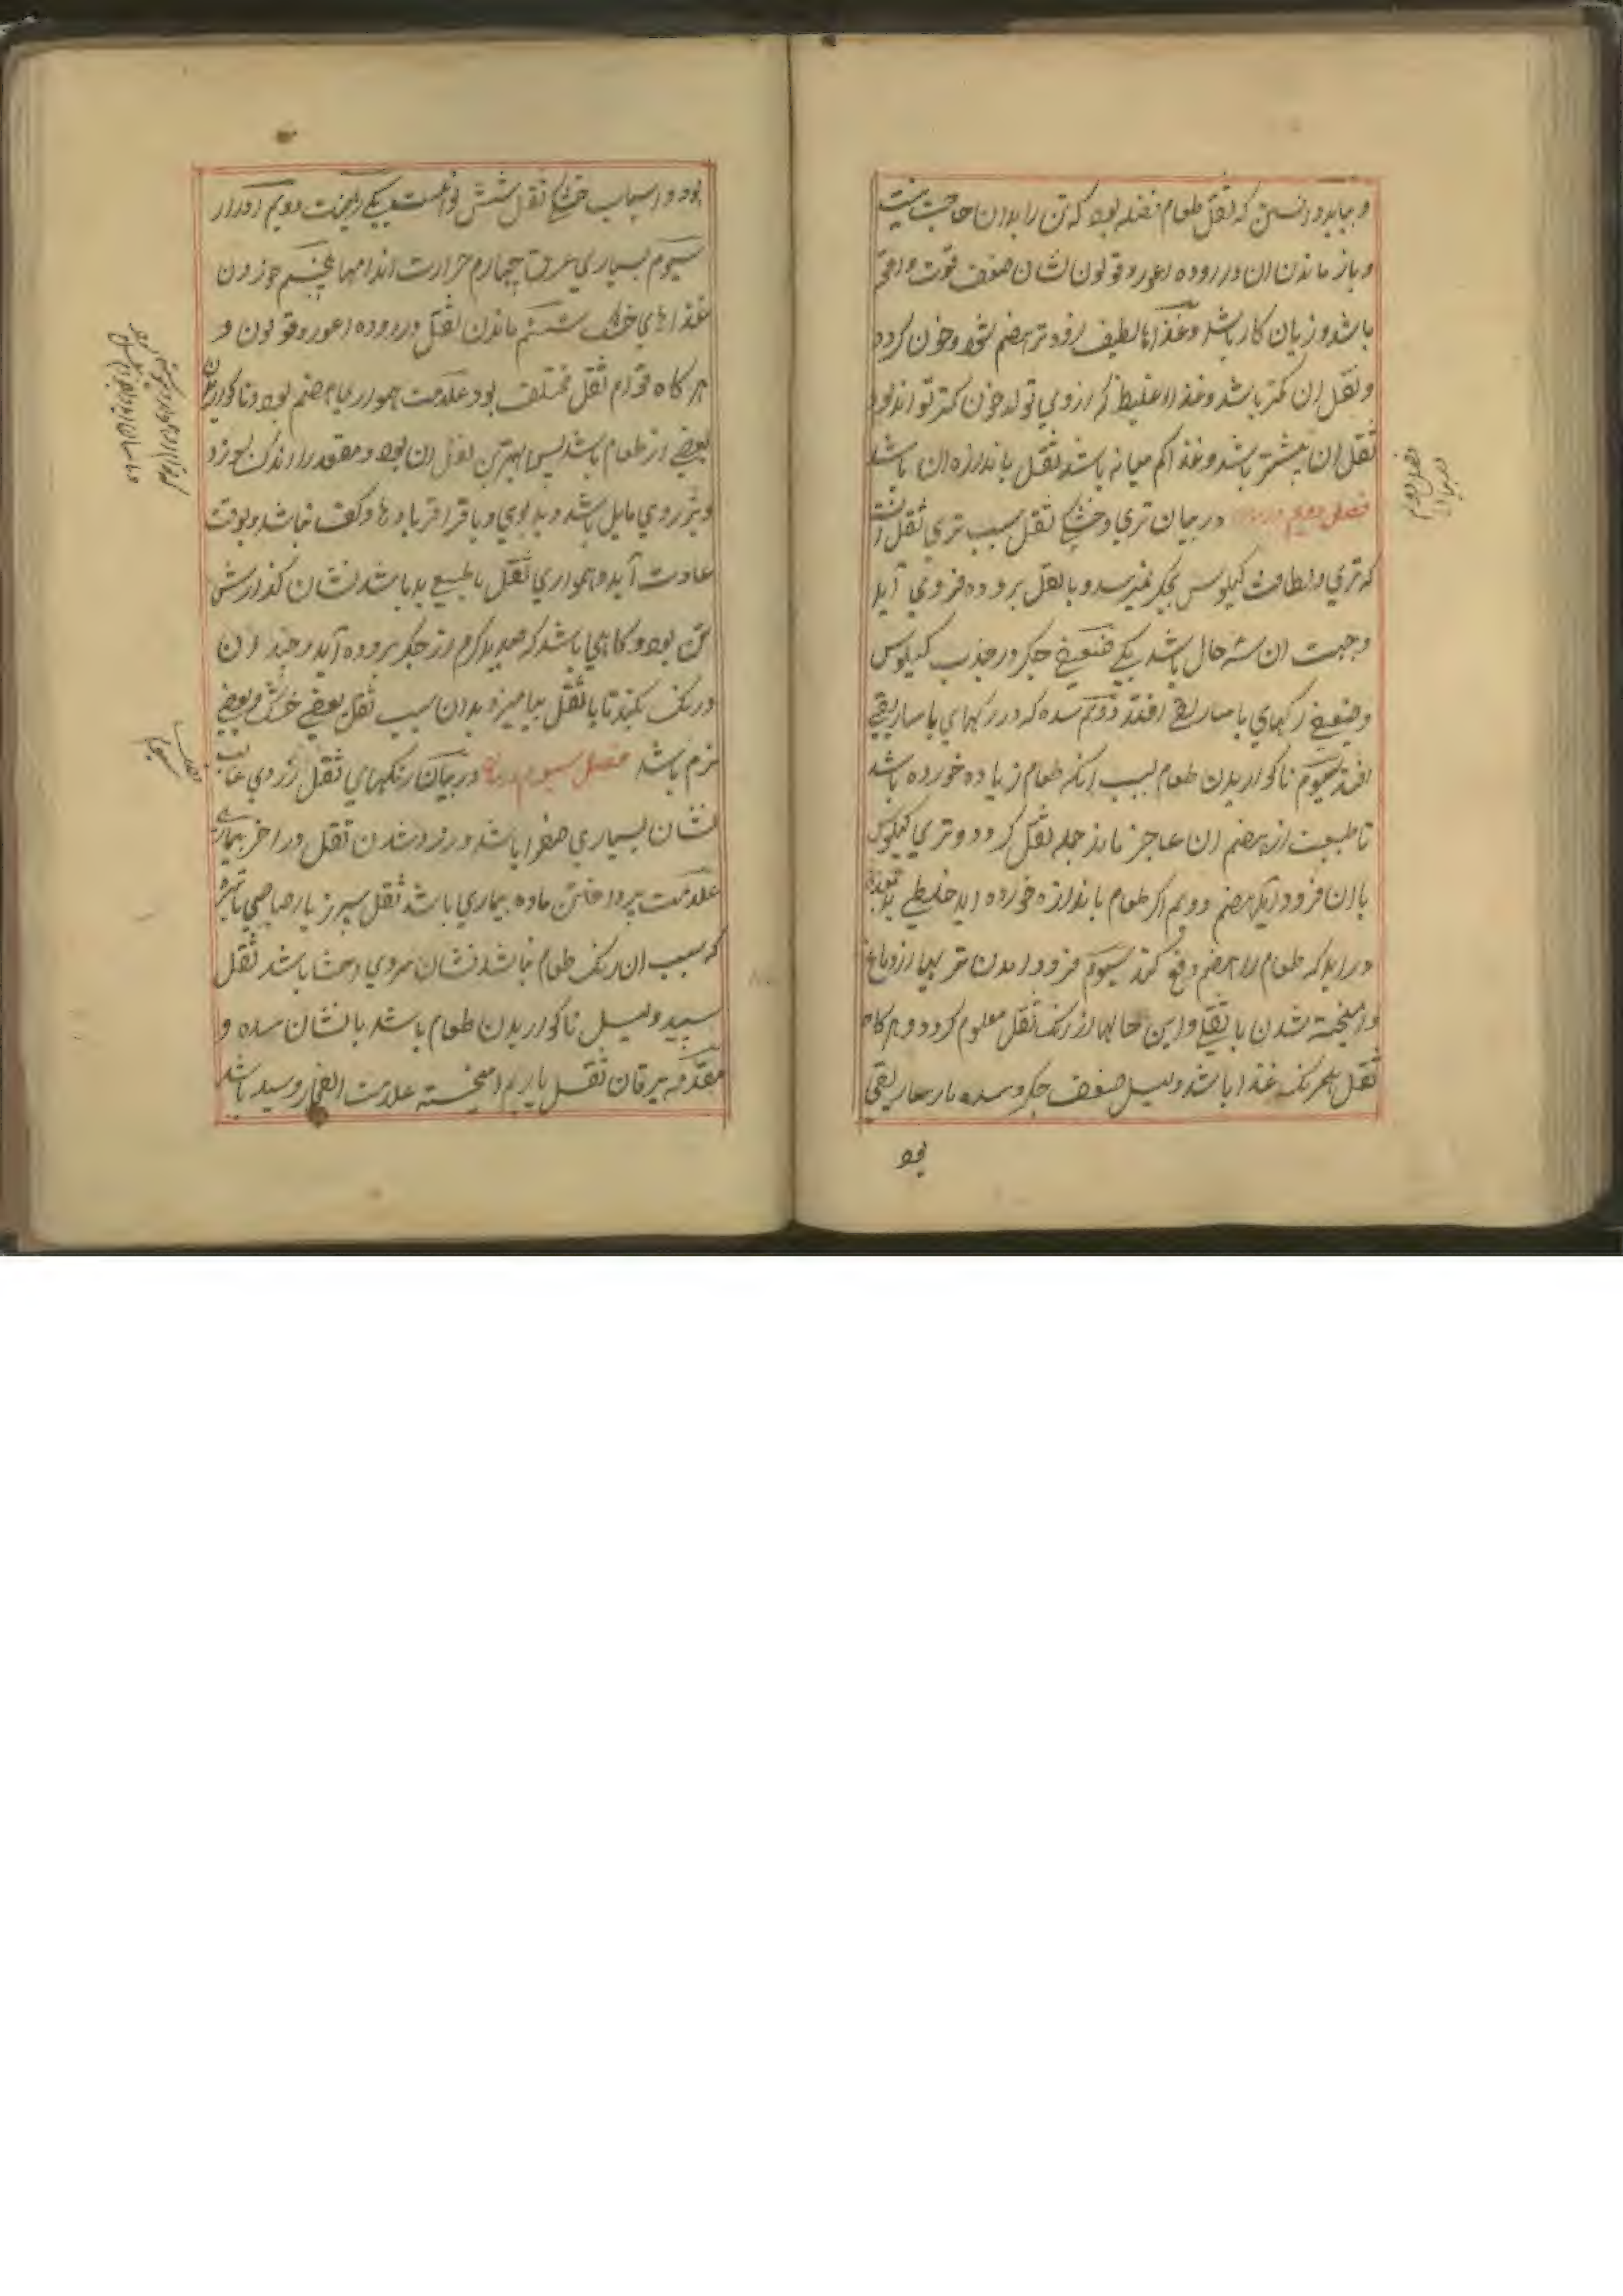 و بباید دانستن که ثقل طعام فضله بود که تن را بدان حاجت نیست
و باز ماندن ان در روده اعور و قولون نشان ضعف قوت دافعه
باشد و زیان کار باشد و غذاها لطیف زودتر هضم شود و خون کردد
و ثقل ان کمتر باشد و غذاا غلیظ که ازوی تولد خون کمتر تواند بود
ثقل ان بیشتر باشد و غذا کم میانه باشد ثقل باندازه ان باشد
فصل دویم در بیان تری و خشکی ثقل سبب تری ثقل انست
که تری و لطافت کیلوس بجکر نمیرسد و با ثقل بروده فرومی آید
و جهت ان سه حال باشد یکی ضعیفی جکر در جذب کیلوس
و ضعیفی رکهای ماساریقی افتد دویم سده که در رکهای ماساریقی
افتد سیوم ناکواریدن طعام بسبب انکه طعام زیاده خورده باشد
تا طبیعت از هضم ان عاجز ماند جمله ثقل کردد و تری کیلوس
با ان فرود آید هضم دویم اکر طعام باندازه خورده اید خلطی بد بمعده
در اید که طعام را هضم دفع کند سیوم فرود امدن تر بیها از دماغ
و امیخته شدن با ثقل و این حالها از رنک ثقل معلوم کردد و هرکاه
ثقل همرنک غذا باشد دلیل ضعف جکر و سده ماساریقی
بود
فصل دوم
بود و اسباب خشکی ثقل شش نوع است یکی ریاضت دویم ادرار
سیوم بسیاری عرق چهارم حرارت اندامها پنجم خوردن
غذاهای خشک ششم ماندن ثقل در روده اعور و قولون و
هرکاه قوام ثقل مختلف بود علامت همواری هضم بود و ناکواریدن
بعضی از طعام باشد پس بهترین ثقل ان بود و مقعد را اندک بسوزد
و بزردی مایل باشد و بد بوی و با قراقر بادها و کف نباشد و بوقت
عادت آید و همواری ثقل با طبیعی بد باشد نشان کدازش
تن بود و کاهی باشد که صدید کرم از جکر بروده آید و چندان
درنک نکند تا با ثقل بیامیزد بدان سبب ثقل بعضی خشک و بعضی
نرم باشد فصل سیوم در بیان رنکهای ثقل زردی غالب
نشان بسیاری صفرا باشد و زرد شدن ثقل در اخر بیماری
علامت پرداختن ماده بیماری باشد ثقل سبز یا رصاصی یا تیره
که سبب ان رنک طعام نباشد نشان سردی احشا باشد ثقل
سپید دلیل ناکواریدن طعام باشد یا نشان سده و
مقدمه یرقان ثقل با ریم امیخته علامت انفجار دبیله باشد